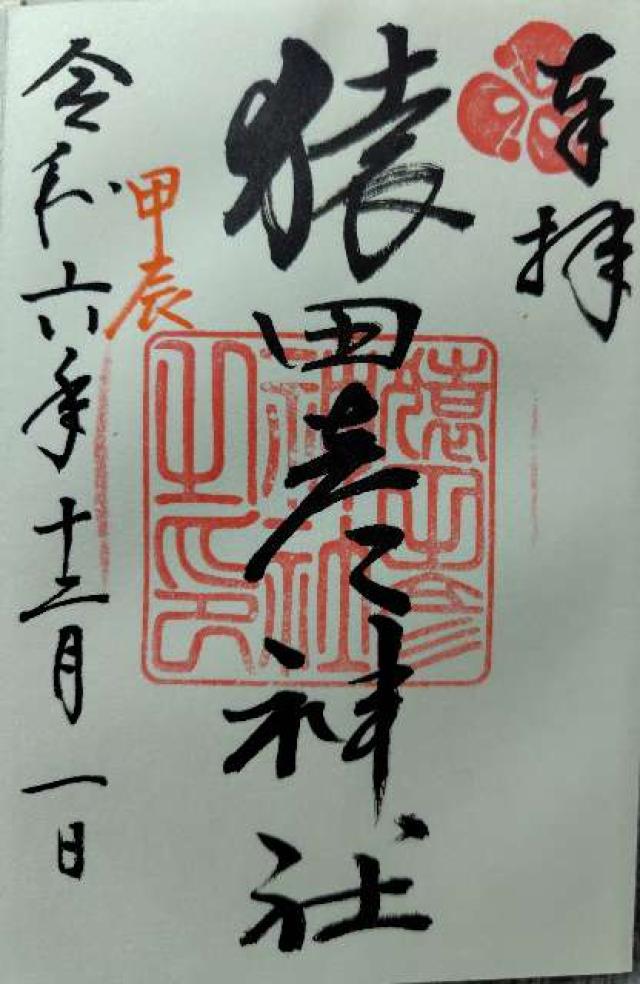 奉拝
猿田彦神社
猿田彦
神社
之印
甲辰
令和六年十二月一日